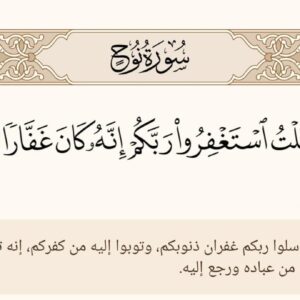 سُورَةُ نُوحٍ
ٱسْتَغْفِرُوا۟ رَبَّكُمْ إِنَّهُۥ كَانَ غَفَّارًا
سلوا ربكم غفران ذنوبكم، وتوبوا إليه من كفركم، إنه
من عباده ورجع إليه.